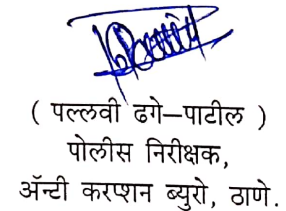 ( पल्लवी ढगे–पाटील )
पोलीस निरीक्षक,
ॲन्टी करप्शन ब्युरो, ठाणे.